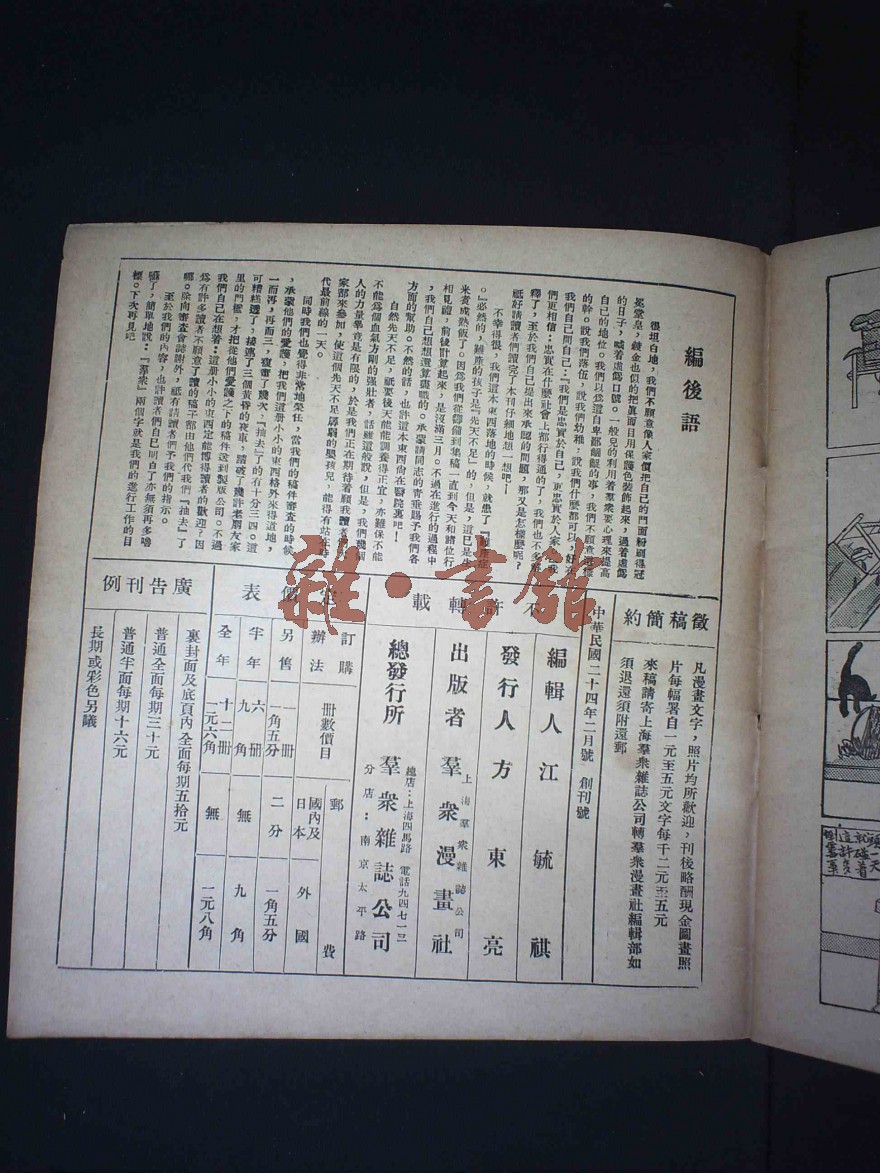 編後語
很坦白地，我們不願意像人家價把自己的門面粉刷得冠
冕堂皇，鍍金也似的把眞面目用保護色裝飾起來，過着虛僞
的日子，喊着虛僞口號。一般兒的利用着羣衆要心理來提高
自己的地位。我們以爲這自卑鄙齷齪的事，我們不願意這樣
的幹。說我們落伍，說我們幼稚，說我們什麼都可以，好
我們自己問自己：『我們是忠實於自己，更忠實於人家』我
們更相信：忠實在什麼社會上都行得通的了，我們也不多解
釋了，至於我們自己提出來承認的問題，那又是怎樣麼呢？
祗好請讀者們讀完了本刊仔細地想一想吧！
不幸得很，我們這本東西落地的時候，就患了
。』必然的，難產的孩子是『先天不足』的，但是，這已是生
來煮成熟飯了。因爲我們從籌備到集稿一直到今天和諸位行
相見禮，前後計算起來，是沒滿三月。不過在進行的過程中
，我們自己想想還算賣職的。承蒙請同志的靑垂賜予我們各
方面的幫助。不然的話，也許這本東西尙在醫院裏吧！
自然先天不足，祗要後天能能調養得正宜，亦難保不能
不能爲個血氣方剛的强壯者，話雖這般說，但是，我們幾個
人的力量畢竟是有限的，於是我們正在期待着願我讀者
家部來參加，使這個先天不足孱弱的嬰孩兒，能得有站在時
代最前線的一天。
同時我們也覺得非常地榮任，當我們的稿件審查的時候
，承蒙他們的愛護，把我們這册小小的東西格外來得道地，
一而再，再而三，
可糟糕透了，接連了三個黃昏的夜車，踏破了幾許老朋友家
里的門檻，才把從他們愛護之下的稿件送到製版公司。不過
我們自己在想着：這册小小的東西定能博得讀者的歡迎？因
爲有許多讀者不願意了讀的稿干部由他們代我們『抽去』了
哪。除向審查會誌謝外，祗有請讀者們予我們的指示。
至於我們的內容，也許讀者們自己明白了亦無須再多嚕
囌了，簡單地說：『羣衆』兩個字就是我們的進行工作的目
標。下次再見吧
徵稿簡約
凡漫畫文字，照片均所歡迎，刊後略酬現金圖畫照
片每幅署自一元至五元文字每千二元至五元
來稿請寄上海羣衆雜誌公司轉羣衆漫畫社編輯部如
須退還須附還郵
中華民國二十四年二月號 創刊號
不許轉載
編輯人 江毓祺
發行人 方東亮
出版者 羣衆漫畫社
上海羣衆雜誌公司
總發行所 羣衆雜誌公司
總店：上海四馬路 電話九四七一二
分店：南京太平路
定價表
訂購辦法 册數 價目 郵費
國內及日本 外國
另售 一册 一角五分 二分 一角五分
半年 六册 九角 無 九角
全年 十二册 一元六角 無 一元八角
廣告刊例
裏封面及底頁內全面每期五拾元
普通全面每期三十元
普通半面每期十六元
長期或彩色另議
雜·書館